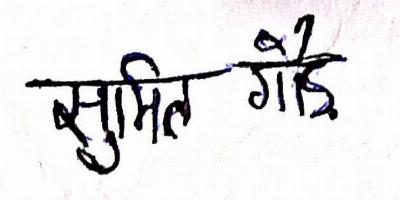 सुमित गौड़